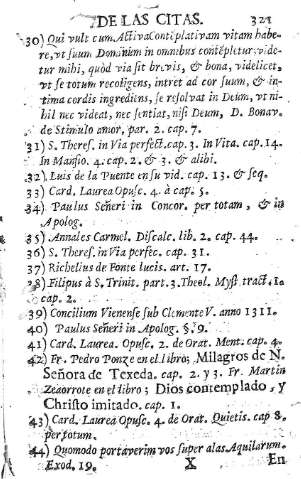 DE LAS CITAS. 321
30) Qui vult cum Activa Contẽplativam vitam habe-
re, vt suum Dominum in omnibus contẽpletur, vide-
tur mihi, quòd via sit brevis, & bona, videlicet,
vt se totum recoligens, intret ad cor suum, & in-
tima cordis ingrediens, se resolvat in Deum, vt ni-
hil nec videat, nec sentiat, nisi Deum, D. Bonav.
de Stimulo amor, par. 2. cap. 7.
31) S. Theres. in Via perfect. cap. 3. In Vita. cap. 14.
In Mansio. 4. cap. 2. & 3. & alibi.
32) Luis de la Puente en su vid. cap. 13. & seq.
33) Card. Laurea Opusc. 4. à cap. 5.
34) Paulus Señeri in Concor. per totam, & in
Apolog.
35) Annales Carmel. Discalc. lib. 2. cap. 44.
36) S. Theres. in Via perfec. cap. 31.
37) Richelius de Fonte lucis. art. 17.
38) Filipus à S. Trinit. part. 3. Theol. Myst. tract. 1.
cap. 2.
39) Concilium Vienense sub Clemente V. anno 1311.
40) Paulus Señeri in Apolog. §. 9.
41) Card. Laurea Opusc. 2. de Orat. Ment. cap. 4.
42) Fr. Pedro Ponze en el libro; Milagros de N.
Señora de Texeda. cap. 2. y 3. Fr. Martin
Zeaorrote en el libro; Dios contemplado, y
Christo imitado. cap. 1.
43) Card. Laurea Opusc. 4. de Orat. Quietis. cap 8.
per totum.
44) Quomodo portaverim vos super alas Aquilarum.
Exod. 19. X En